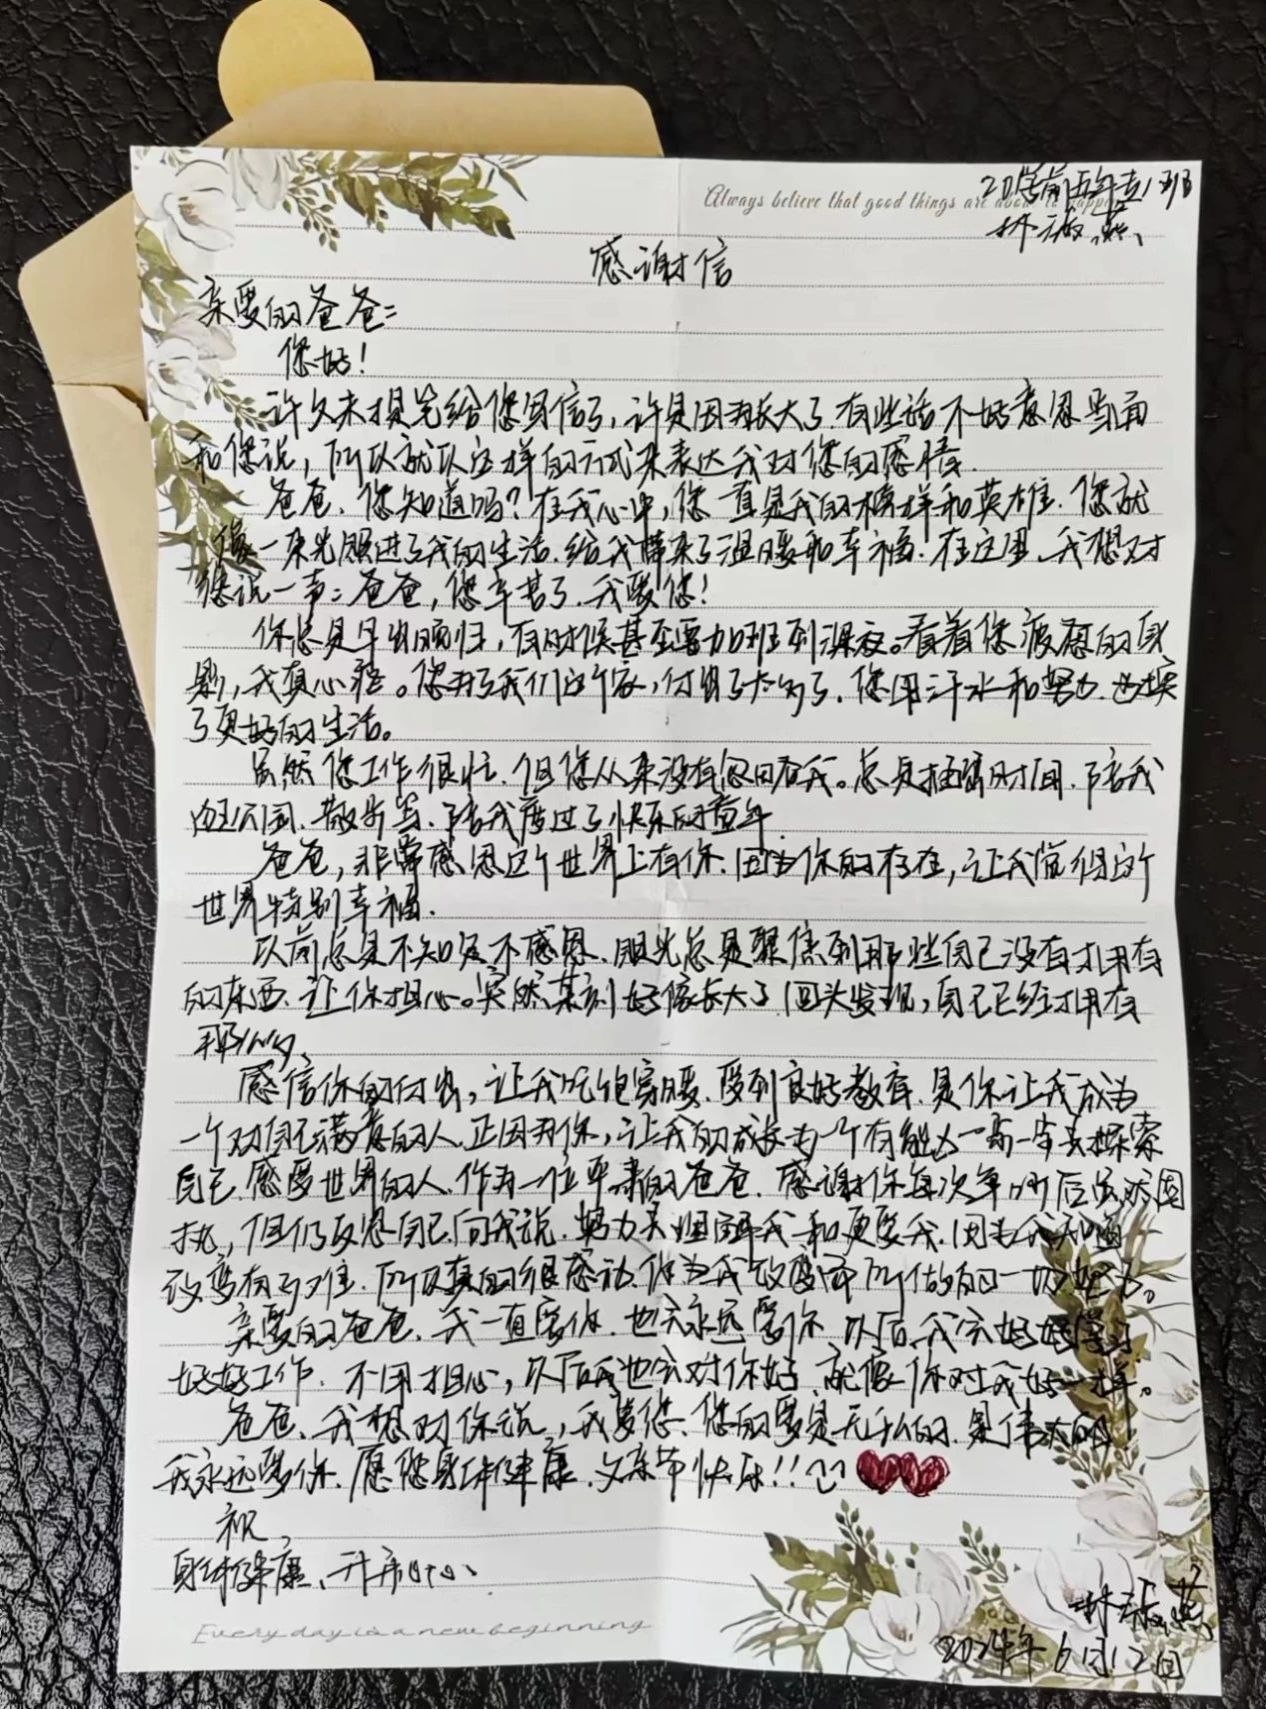 Always believe that good things are about to happen
20学前五年专1班
林淑燕
感谢信
亲爱的爸爸:
您好!
许久未提笔给您写信了,许是因为长大了.有些话不好意思当面
和您说,所以就以这样的方式来表达我对您的感情.
爸爸.您知道吗?在我心中,您一直是我的榜样和英雄.您就
像一束光照进了我的生活.给我带来了温暖和幸福.在这里.我想对
您说一声:爸爸,您辛苦了.我爱您!
你总是早出晚归,有时候甚至要加班到深夜。看着您疲惫的身
影,我真心疼。您为了我们这个家,付出了太多了.您用汗水和努力.
了更好的生活。
虽然您工作很忙.但您从来没有忽略我。总是抽时间.陪我
逛公园.散步等.陪我度过了快乐的童年.
爸爸,非常感恩这个世界上有你.因为你的存在,让我觉得这个
世界特别幸福.
以前总是不知足不感恩.眼光总是聚焦到那些自己没有拥有
的东西.让你担心。突然某刻好像长大了.回头发现,自己已经拥有
那么多
感信你的付出,让我吃饱穿暖.受到良好教育.是你让我成为
一个对自己满意的人.正因为你,让我的成长为一个有能力一点一点去探索
自己.感受世界的人.作为一位平凡的爸爸.感谢你每次争吵后虽然固
执,但仍反思自己.向我说.努力去理解我和更爱我.因为我知道
改变有多难.所以真的很感动.你为我改变而所做的一切努力。
亲爱的爸爸.我一直爱你.也会永远爱你.以后.我会好好学习
好好工作.不用担心,以后我也会对你好.就像你对我好一样。
爸爸.我想对你说,我爱您.您的爱是无私的.是伟大的
我永远爱你.愿您身体健康.父亲节快乐!!
祝
身体健康、开开心心
林淑燕
2024年6月12日
Every day is a new beginning